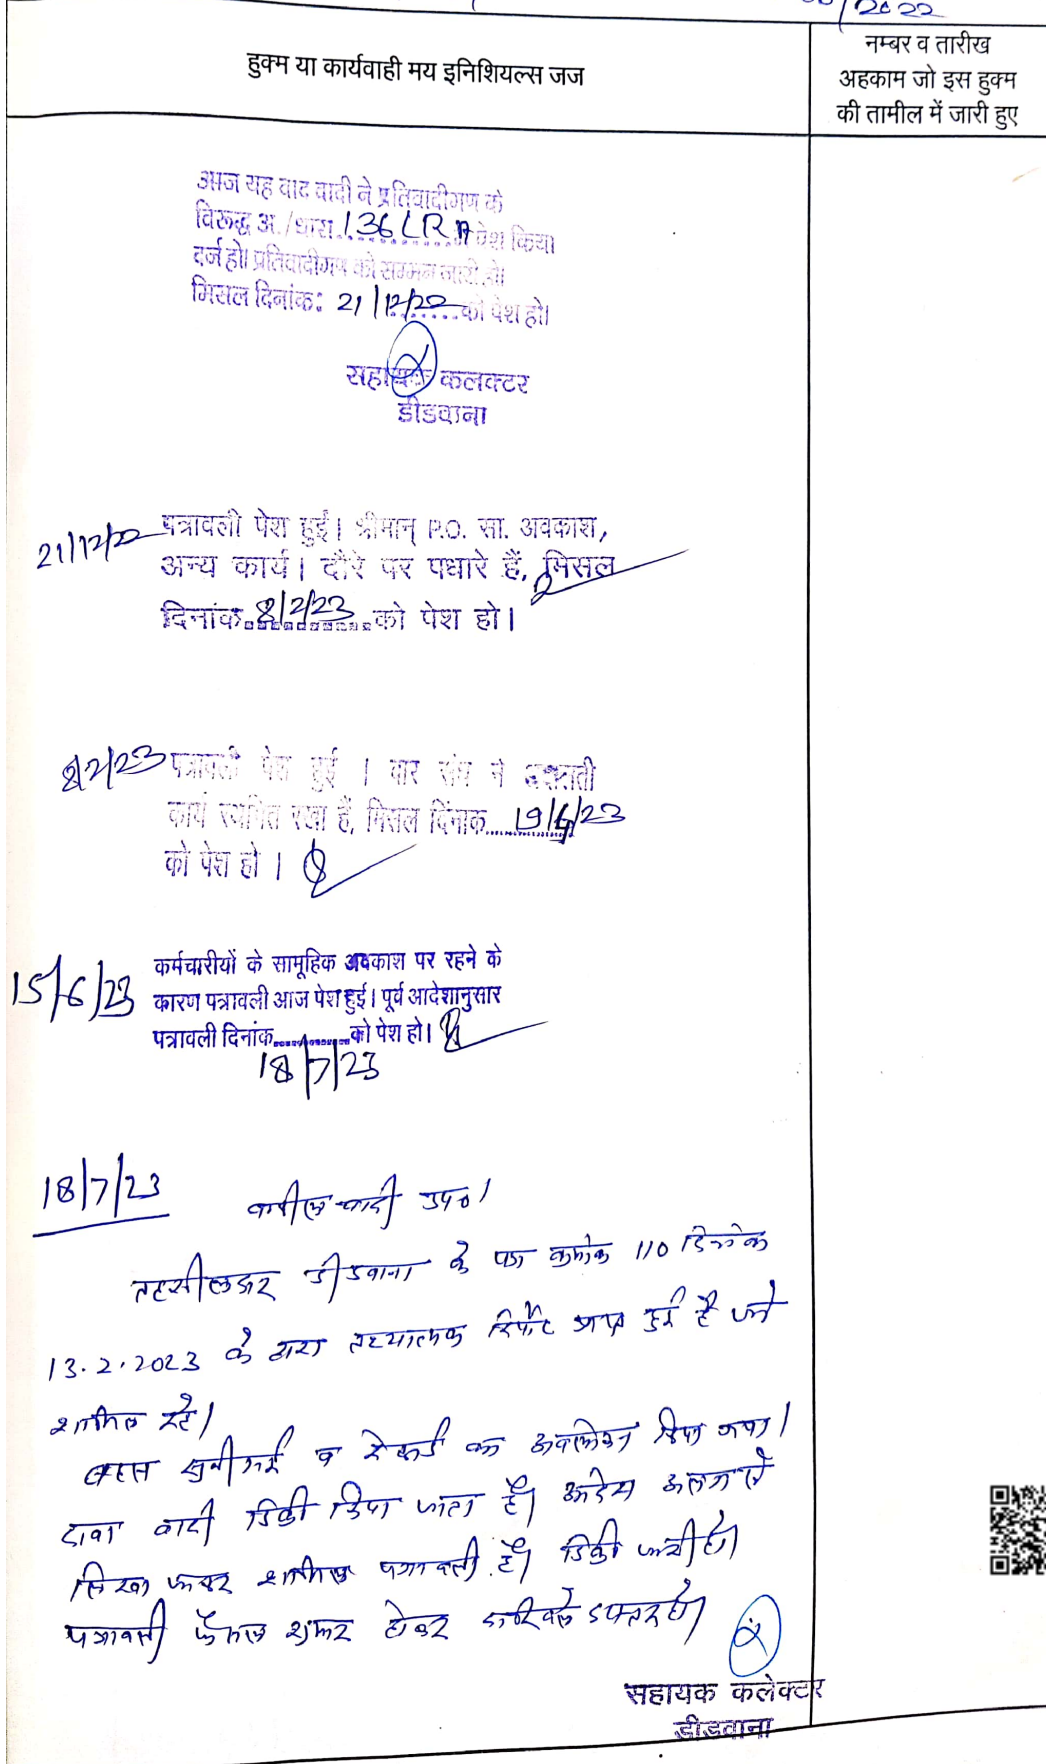 /2022
हुक्म या कार्यवाही मय इनिशियल्स जज
नम्बर व तारीख
अहकाम जो इस हुक्म
की तामील में जारी हुए
आज यह वाद वादी ने प्रतिवादीगण के
विरूद्ध अ./धारा 136 LRA पेश किया
दर्ज हो। प्रतिवादीगण को सम्मन जारी हो।
मिसल दिनांक: 21/12/22 को पेश हो।
सहायक कलक्टर
डीडवाना
21/12/22 पत्रावली पेश हुई। श्रीमान् P.O. सा. अवकाश,
अन्य कार्य। दौरे पर पधारे हैं, मिसल
दिनांक 8/2/23 को पेश हो।
8/2/23 पत्रावली पेश हुई । बार संघ ने अदालती
कार्य स्थगित रखा हैं, मिसल दिंनाक 19/4/23
को पेश हो ।
15/6/23 कर्मचारीयों के सामूहिक अवकाश पर रहने के
कारण पत्रावली आज पेश हुई। पूर्व आदेशानुसार
पत्रावली दिनांक............को पेश हो।
18/7/23
18/7/23
वकील वादी उप०।
तहसीलदार डीडवाना के पत्र क्रमांक 110 दिनांक
13.2.2023 के द्वारा तथ्यात्मक रिपोर्ट प्राप्त हुई है
शामिल रहे।
बहस सुनी गई व रेकर्ड का अवलोकन किया गया।
दावा वादी डिक्री किया जाता है। आदेश अलग से
लिखा जाकर शामिल पत्रावली है। डिक्री जारी हो।
पत्रावली फैसल शुमार होकर दाखिल दफ्तर हो।
सहायक कलेक्टर
डीडवाना